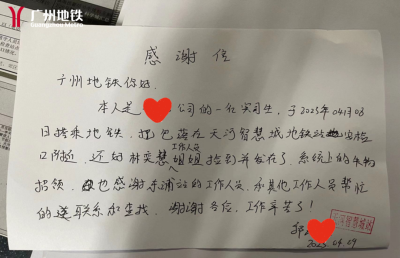 广州地铁
Guangzhou Metro
感谢信
广州地铁你好
本人是 公司的一位实习生，于2025年04月03
日搭乘地铁，把包落在天河智慧城地铁站 安检
口附近，还好林奕慧姐姐捡到并发在了系统上的失物
工作人员
招领，也感谢东浦站的工作人员，和其他工作人员帮忙
的联系和查找，谢谢各位，工作辛苦了！
2025.04.09
天河智慧城站